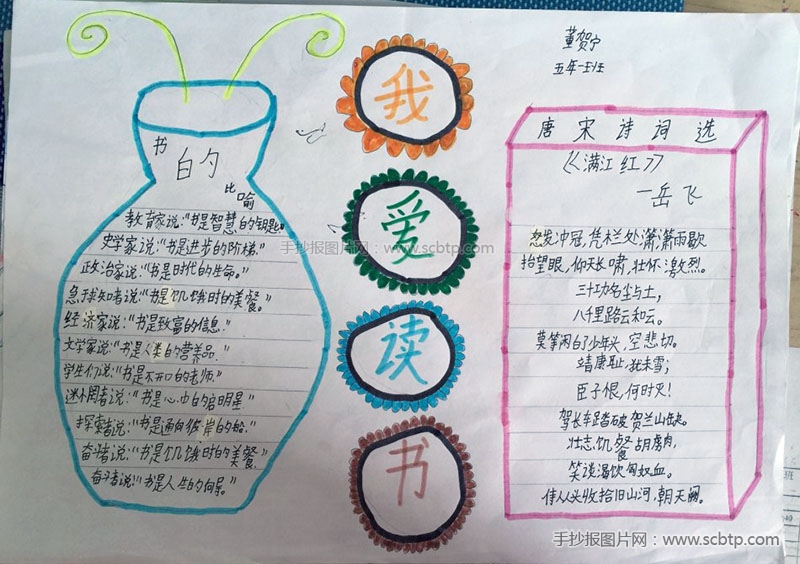 董贺宁
五年一班
书
的
比
喻
教育家说:“书是智慧的钥匙”
史学家说:“书是进步的阶梯.”
政治家说:“书是时代的生命.”
急求知者说:“书是饥饿时的美餐。
经济家说:“书是致富的信息.”
文学家说:“书是人类的营养品.”
学生们说:“书是不开口的老师.”
迷惘者说:“书是心中的启明星.
探索者说:“书是通向彼岸的船.
奋斗者说:“书是饥饿时的美餐.
奋斗者说:“书是人生的向导。”
我
爱
读
书
唐宋诗词选
《满江红》
一岳飞
怒发冲冠,凭栏处潇潇雨歇
抬望眼,仰天长啸,壮怀激烈。
三十功名尘与土,
八千里路云和云。
莫等闲白了少年头,空悲切。
靖康耻,犹未雪;
臣子恨,何时灭!
驾长车踏破贺兰山缺。
壮志饥餐胡虏肉,
笑谈渴饮匈奴血。
待从头收拾旧山河,朝天阙。
手抄报图片网:www.scbtp.com
手抄报图片网:www.scbtp.com